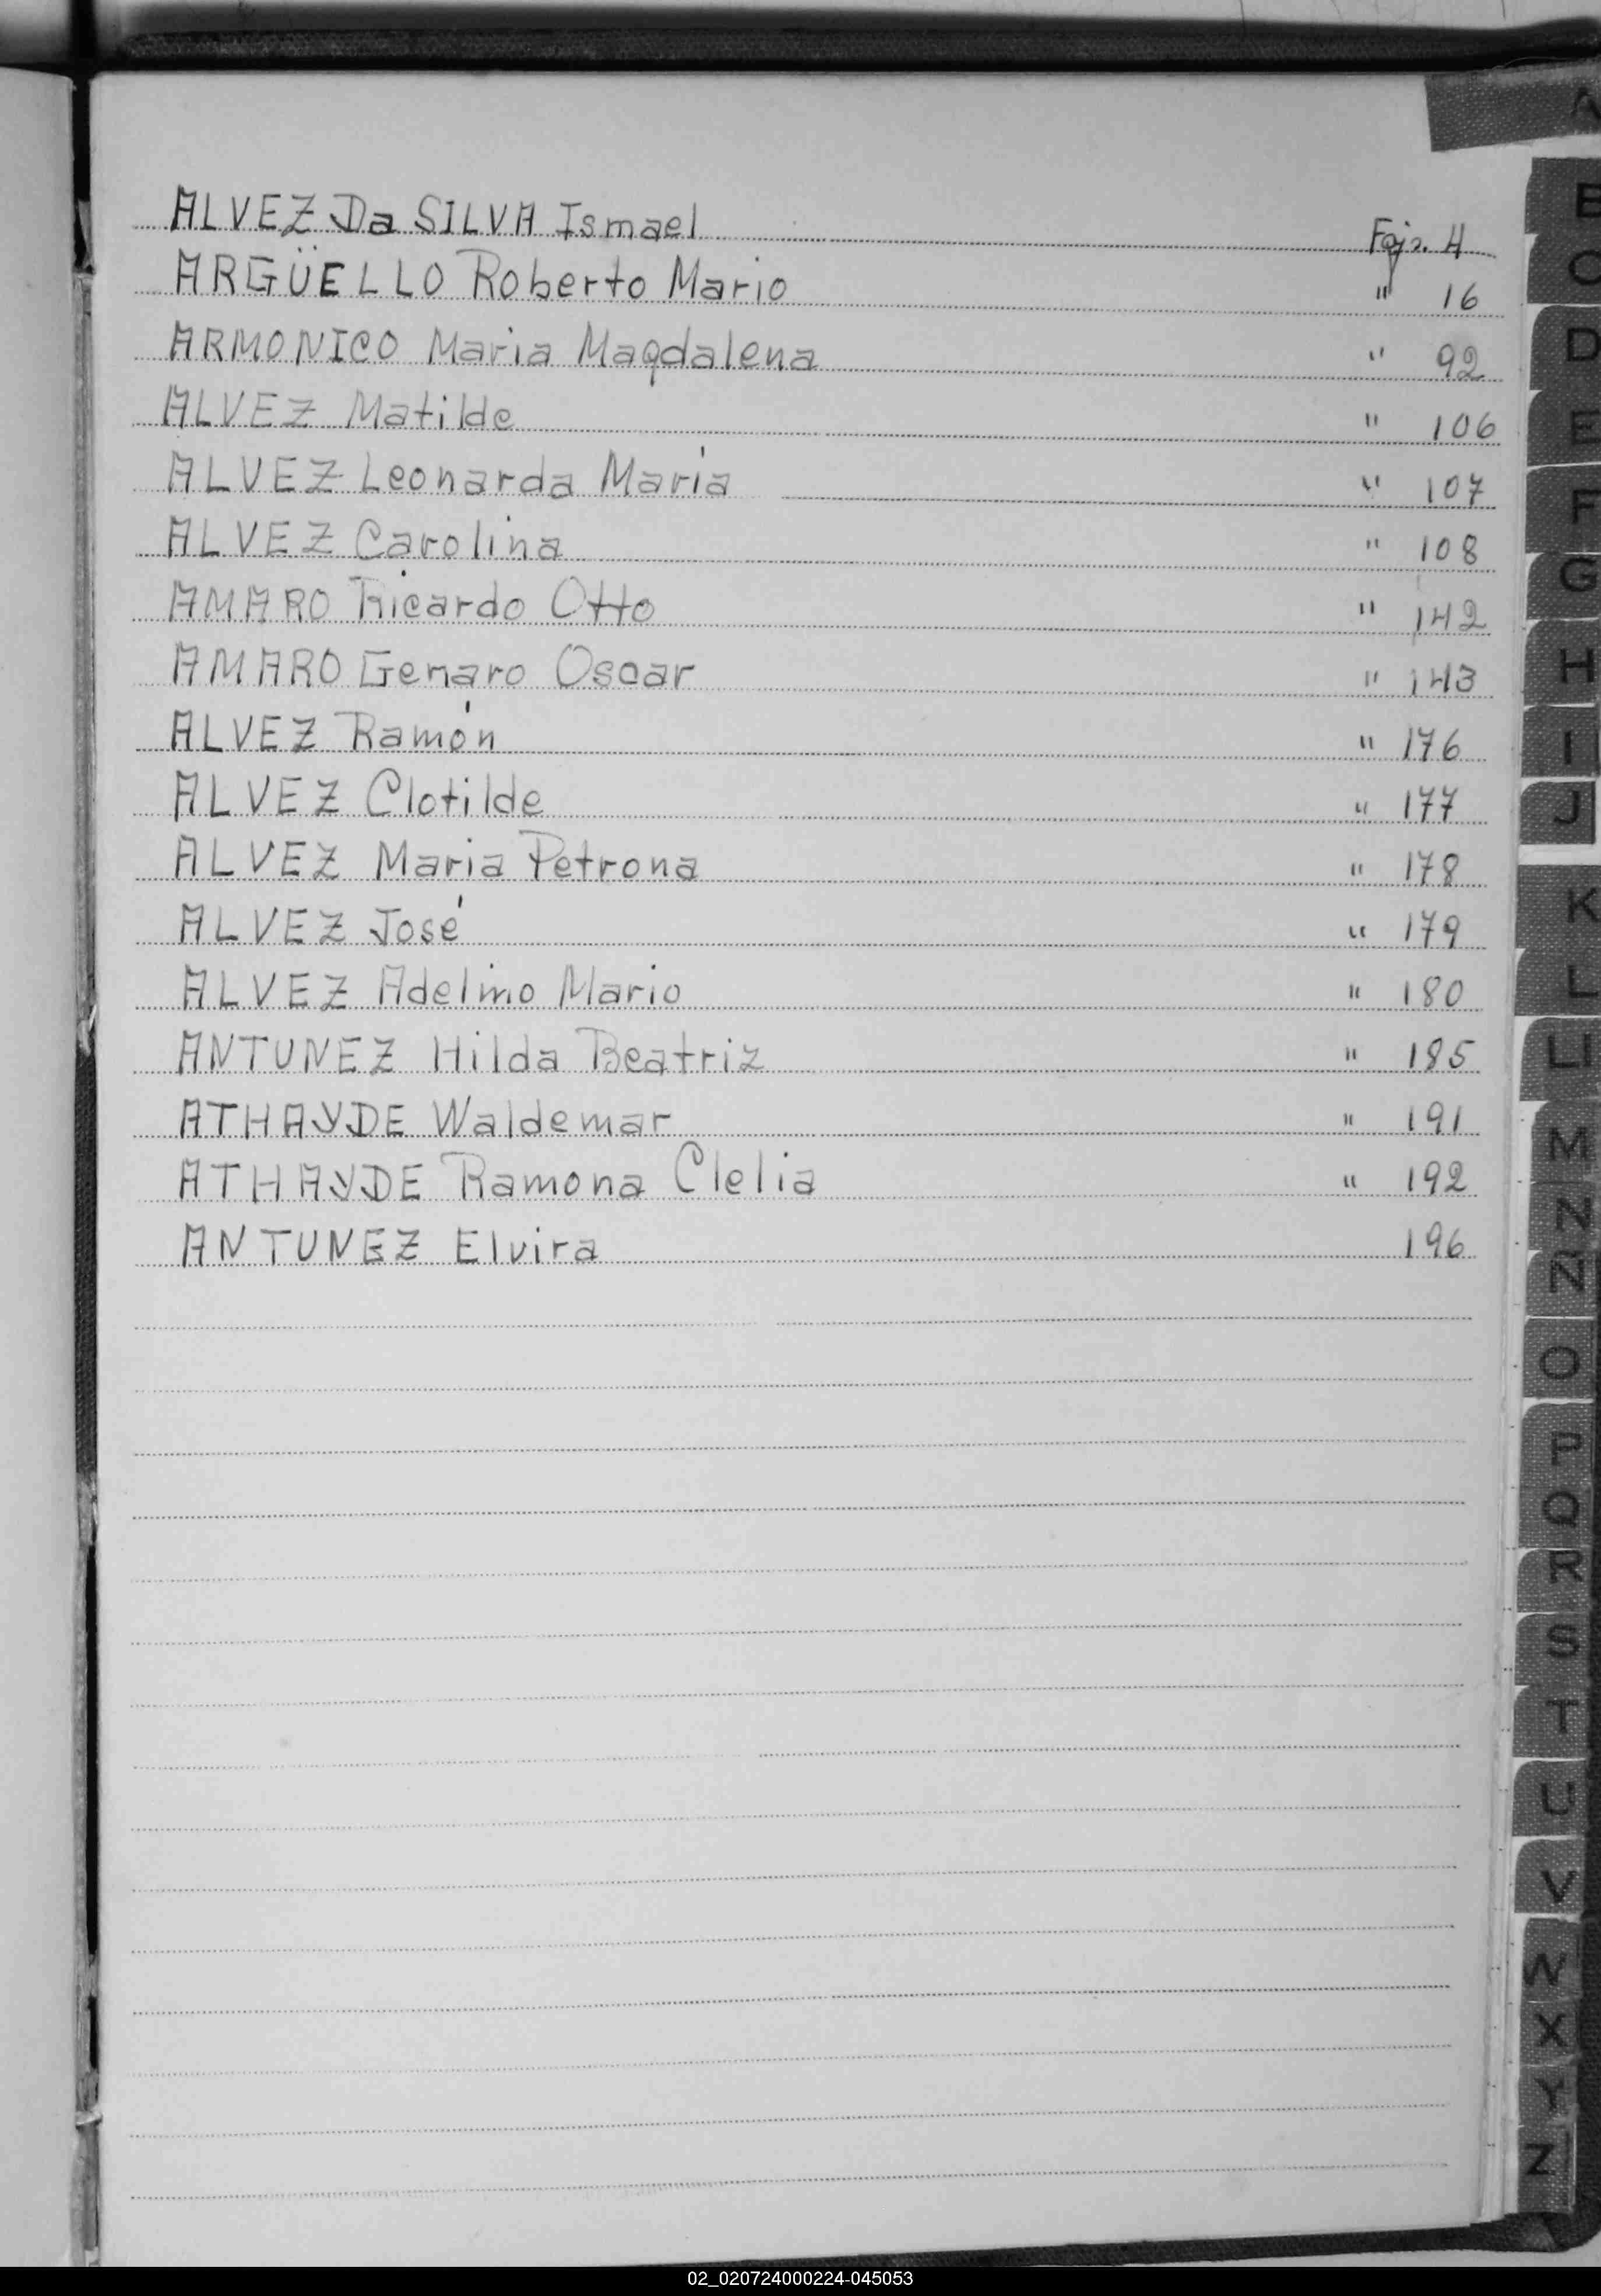 ALVEZ Da SILVA Ismael Fojs. 4
ARGÜELLO Roberto Mario " 16
ARMONICO Maria Magdalena " 92
ALVEZ Matilde " 106
ALVEZ Leonarda María " 107
ALVEZ Carolina " 108
AMARO Ricardo Otto " 142
AMARO Genaro Oscar " 143
ALVEZ Ramón " 176
ALVEZ Clotilde " 177
ALVEZ Maria Petrona " 178
ALVEZ José " 179
ALVEZ Adelmo Mario " 180
ANTUNEZ Hilda Beatriz " 185
ATHAYDE Waldemar " 191
ATHAYDE Ramona Clelia " 192
ANTUNEZ Elvira 196
A
B
C
D
E
F
G
H
I
J
K
L
LI
M
N
Ñ
O
P
Q
R
S
T
U
V
W
X
Y
Z
02_020724000224-045053